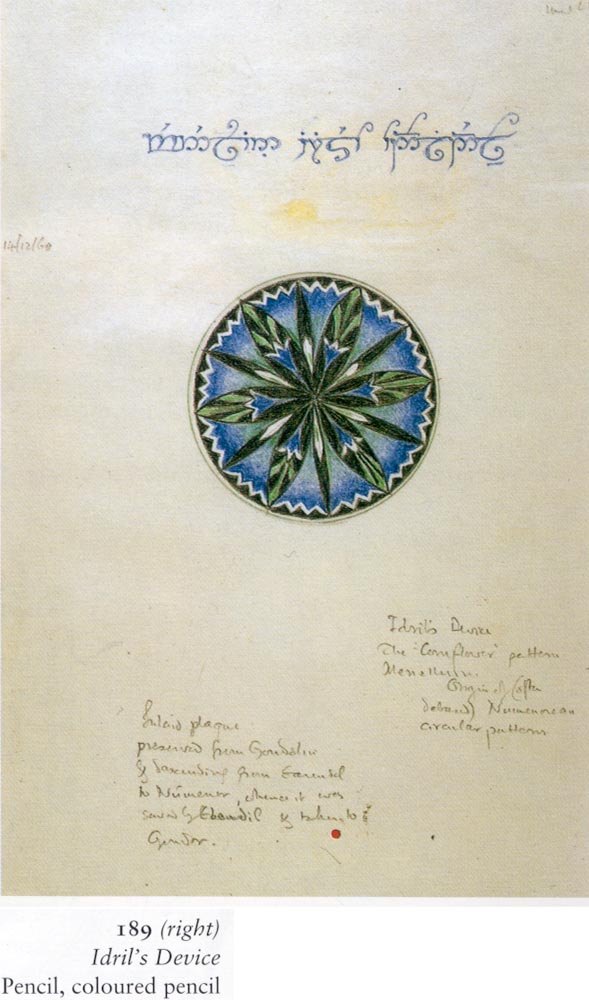 14/12/60
Idril's Device
The 'Cornflower' pattern
Menelluin.
Origin of (often
debased) Númenórean
circular patterns
Inlaid plaque
preserved from Gondolin
& descending from Earendil
to Númenor, whence it was
saved by Elendil & taken to
Gondor.
189 (right)
Idril's Device
Pencil, coloured pencil